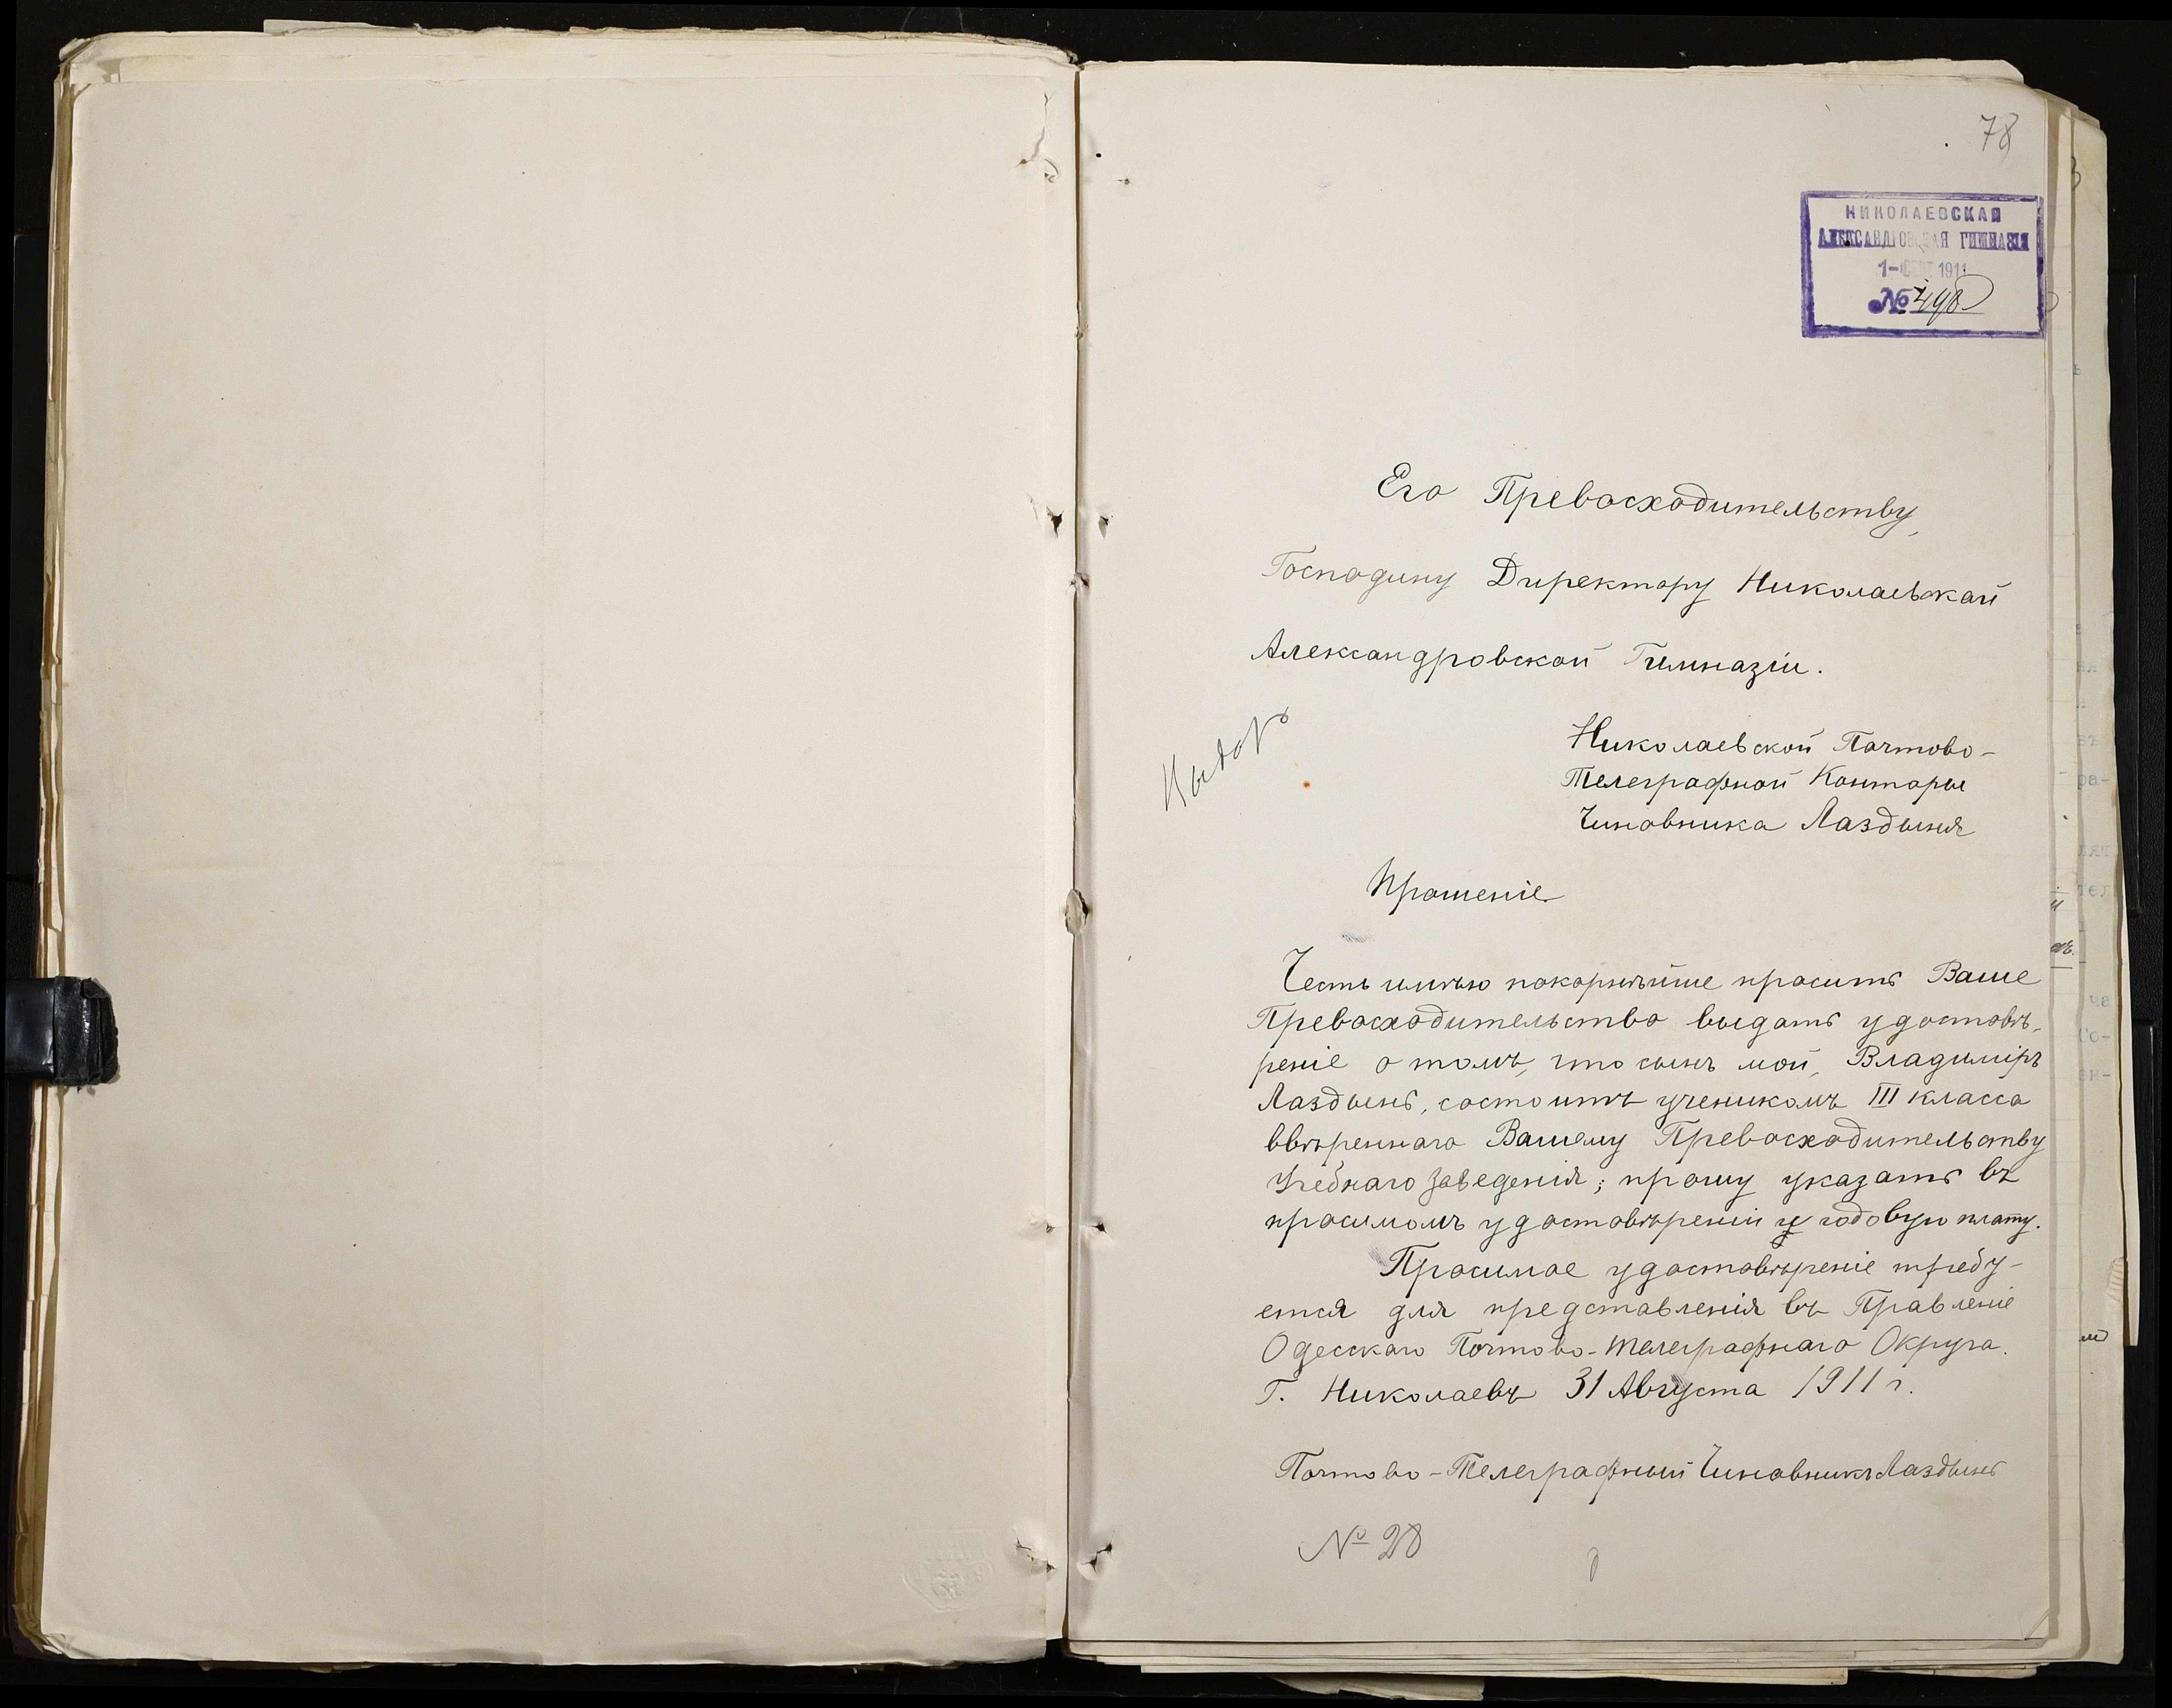 78
НИКОЛАЕВСКАЯ
АЛЕКСАНДРОВСКАЯ ГИМНАЗІЯ
1 - СЕН 1911
№
Его Превосходительству,
Господину Директору Николаевской
Александровской Гимназіи.
Николаевской Почтово-
Телеграфной Конторы
Чиновника Лаздыня
Прошеніе
Честь имѣю покорнѣйше просить Ваше
Превосходительство выдать удостовѣ-
реніе о томъ, что сынъ мой, Владиміръ
Лаздынь, состоитъ ученикомъ III класса
ввѣреннаго Вашему Превосходительству
Учебнаго Заведенія; прошу указать въ
просимомъ удостовѣреніи и годовую плату.
Просимое удостовѣреніе требу-
ется для представленія въ Правленіе
Одесскаго Почтово-Телеграфнаго Округа.
Г. Николаевъ 31 Августа 1911 г.
Почтово-Телеграфный Чиновникъ Лаздынь
№ 28